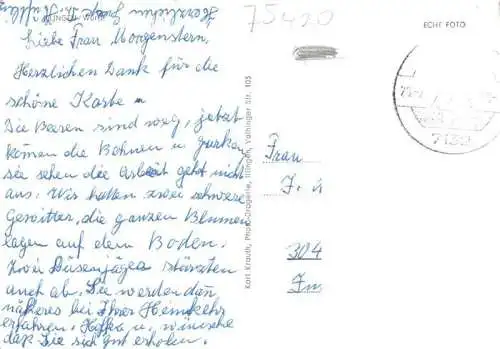 Herzlichen Gruß
Liebe Frau Morgenstern,
Herzlichen Dank für die
schöne Karte
Die Beeren sind weg, jetzt
kommen die Bohnen u. Gurken
sie sehen die Arbeit geht nicht
aus. Wir hatten zwei schwere
Gewitter, die ganzen Blumen
lagen auf dem Boden.
Zwei Düsenjäger stürzten
auch ab. Sie werden dan
näheres bei Ihrer Heimkehr
erfahren. Hoffen u. wünsche
daß Sie sich gut erholen.
75420
ECHT FOTO
Karl Krauth, Photo-Drogerie, Illingen, Vaihinger Str. 105
7139
Frau
J.
304